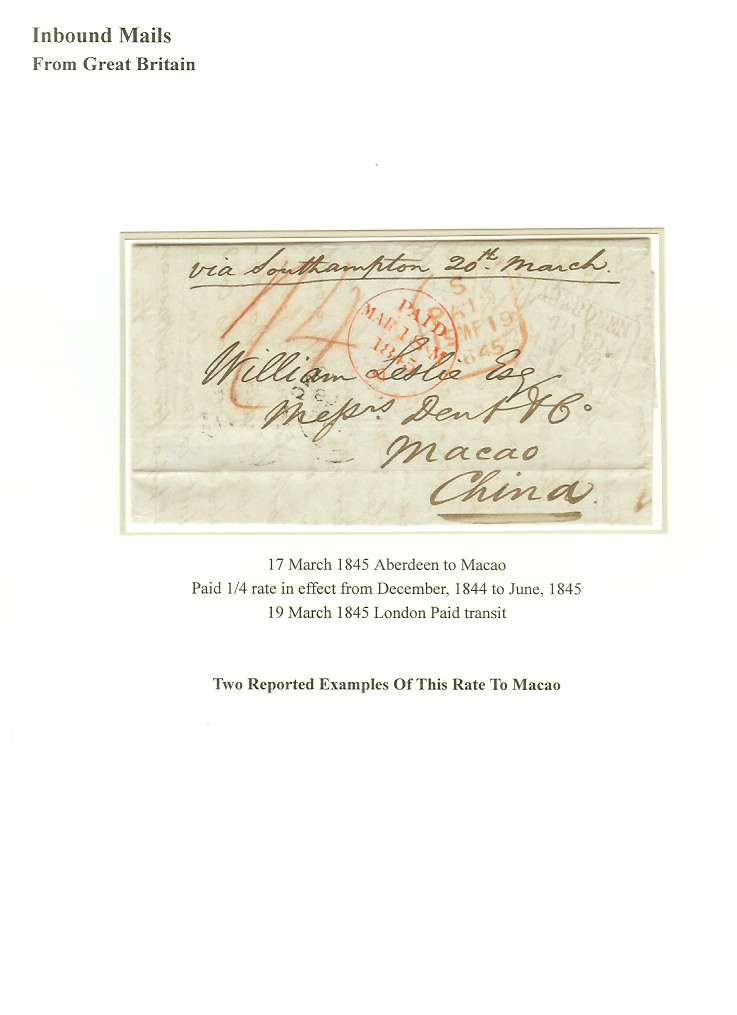 Inbound Mails
From Great Britain
via Southampton 20th March.
1/4
PAID
MAR 18
1845
S
PAID
MR 19
1845
ABERDEEN
William Leslie Esq
Messrs Dent & Co
Macao
China.
17 March 1845 Aberdeen to Macao
Paid 1/4 rate in effect from December, 1844 to June, 1845
19 March 1845 London Paid transit
Two Reported Examples Of This Rate To Macao